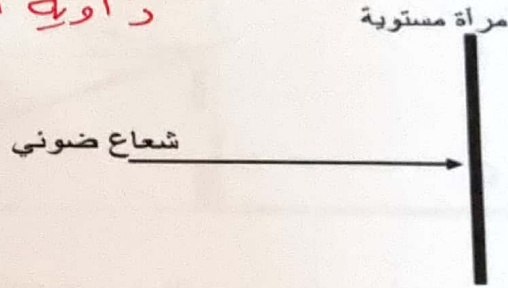 زاوية
مرآة مستوية
شعاع ضوئي